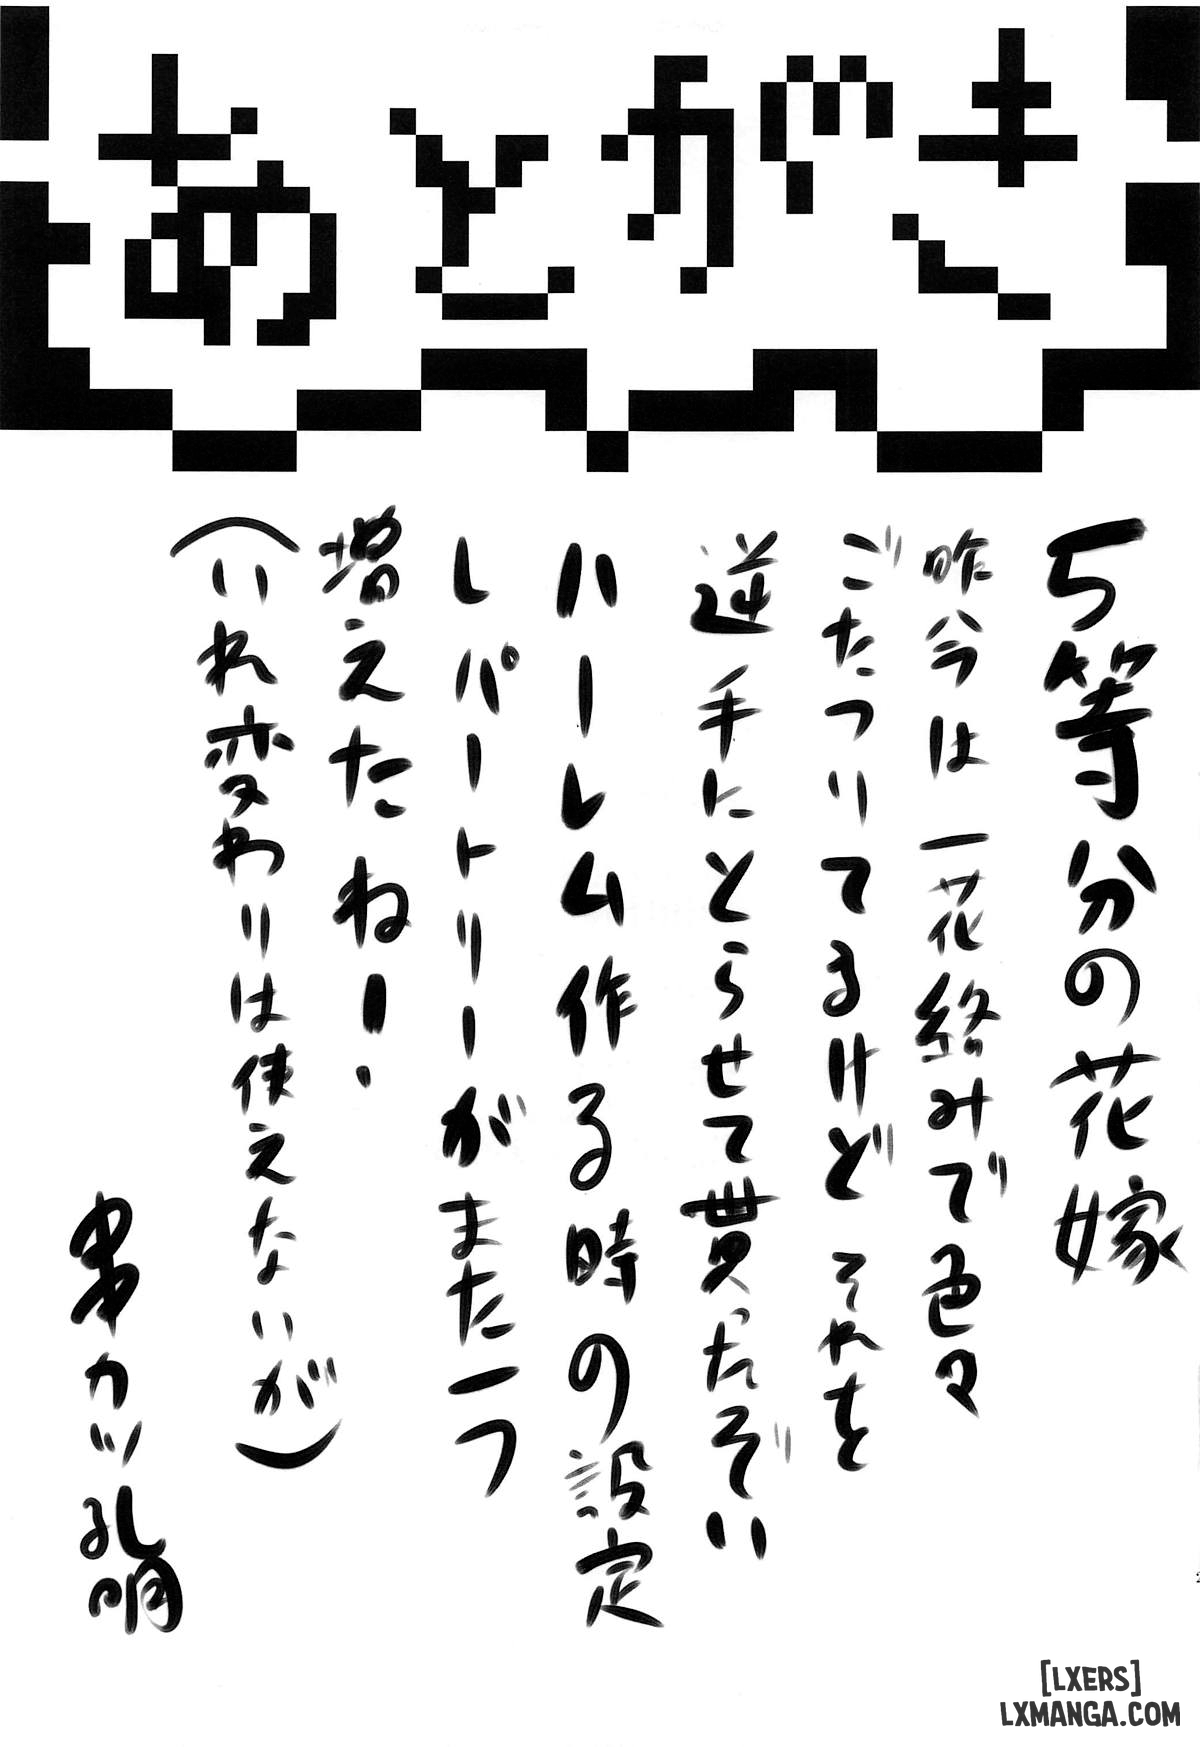 あとがき
5等分の花嫁
昨今は一花絡みで色々
ごたついてるけどそれを
逆手にとらせて貰ったぞい
ハーレム作る時の設定
レパートリーがまた一つ
増えたね!
(いれ変わりは使えないが)
串カツ孔明
[LXERS]
LXMANGA.COM